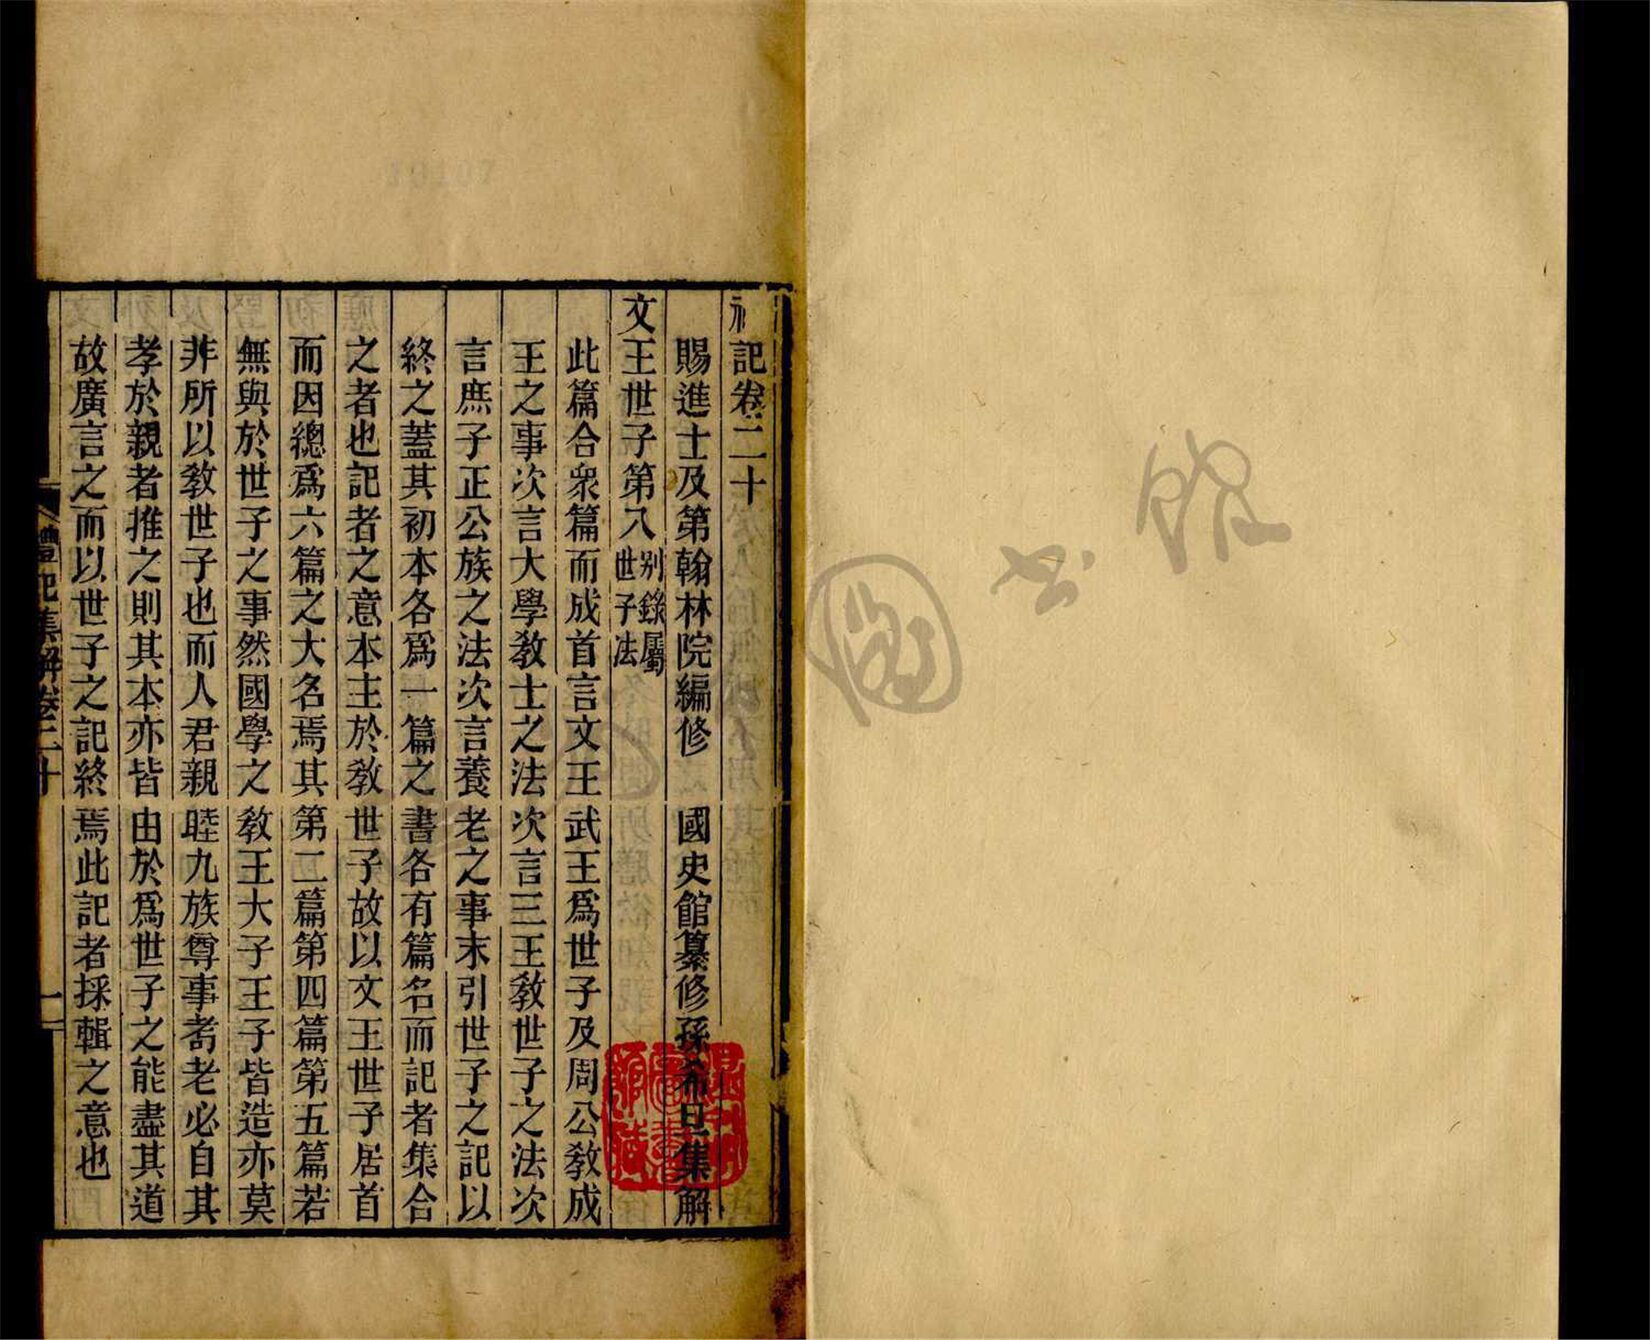 礼記卷二十
賜進士及第翰林院編修　國史館纂修孫希旦集解
文王世子第八別錄屬世子法
此篇合衆篇而成首言文王武王爲世子及周公敎成
王之事次言大學敎士之法次言三王敎世子之法次
言庶子正公族之法次言養老之事末引世子之記以
終之蓋其初本各爲一篇之書各有篇名而記者集合
之者也記者之意本主於敎世子故以文王世子居首
而因總爲六篇之大名焉其第二篇第四篇第五篇若
無與於世子之事然國學之敎王大子王子皆造亦莫
非所以敎世子也而人君親睦九族尊事耇老必自其
孝於親者推之則其本亦皆由於爲世子之能盡其道
故廣言之而以世子之記終焉此記者採輯之意也
禮記集解卷二十
一
10107